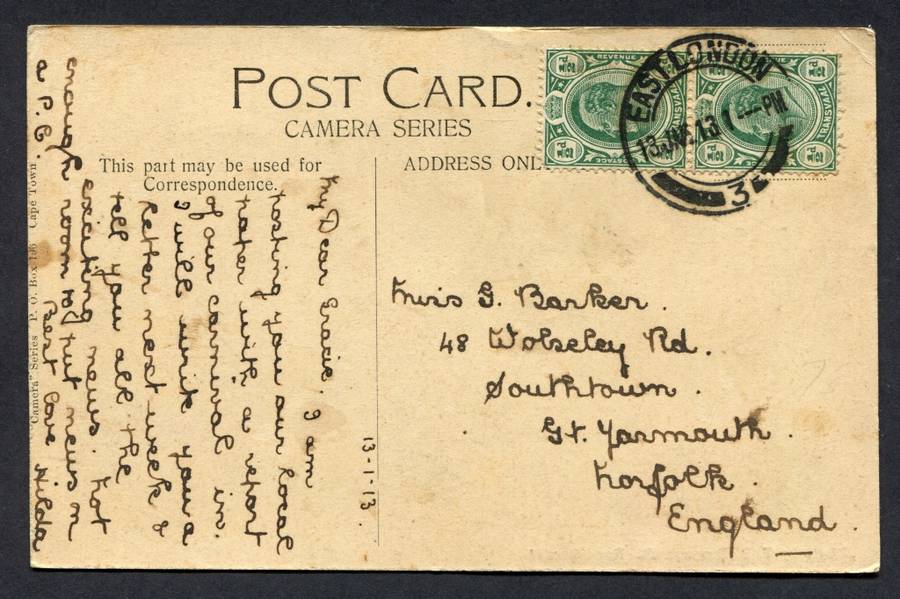 POST CARD.
CAMERA SERIES
This part may be used for
Correspondence.
ADDRESS ONL
REVENUE
POSTAGE
TRANSVAAL
EAST LONDON
13 JAN 13 1 PM
3
13-1-13.
My Dear Gracie. I am
posting you our local
paper with a report
of our carnival in.
I will write you a
letter next week &
tell you all the
exciting news. Not
enough room to put news on
a P.C.
Best love Hilda
Miss G. Barker.
48 Wolseley Rd.
Southtown.
Gt. Yarmouth.
Norfolk.
England.
"Camera" Series P. O. Box 196 Cape Town